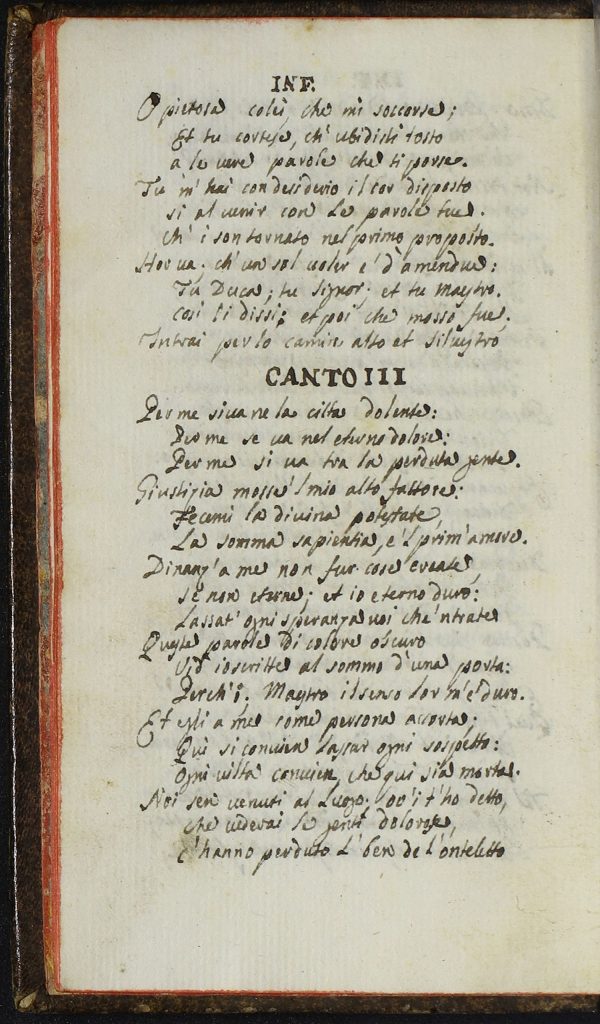 INF.
O pietosa colei, che mi soccorse;
Et tu cortese, ch' ubidisti tosto
a le vere parole che ti porse.
Tu m' hai con desiderio il cor disposto
si al venir con le parole tue.
Ch' i son tornato nel primo proposto.
Hor va; ch' un sol voler e' d' amendue:
Tu Duca; tu signor; et tu maestro.
Cosi li dissi; et poi che mosso fue,
Intrai per lo camin alto et silvestro
CANTO III
Per me si va ne la citta dolente:
Per me se va nel eterno dolore:
Per me si va tra la perduta gente.
Giustitia mosse'l mio alto fattore:
Fecemi la divina potestate,
La somma sapientia, e'l prim' amore.
Dinanz' a me non fur cose create,
se non eterne; et io eterno duro:
Lassat' ogni speranza voi che'ntrate
Queste parole di colore oscuro
Vid' io scritte al sommo d' una porta:
Perch' i; Maestro il senso lor m' e' duro.
Et egli a me come persona accorta;
Qui si convien lassar ogni sospetto:
Ogni vilta convien, che qui sia morta.
Noi sen venuti al luogo; ov' i t' ho detto,
che vederai le genti dolorose,
c' hanno perduto l' ben de l' onteletto